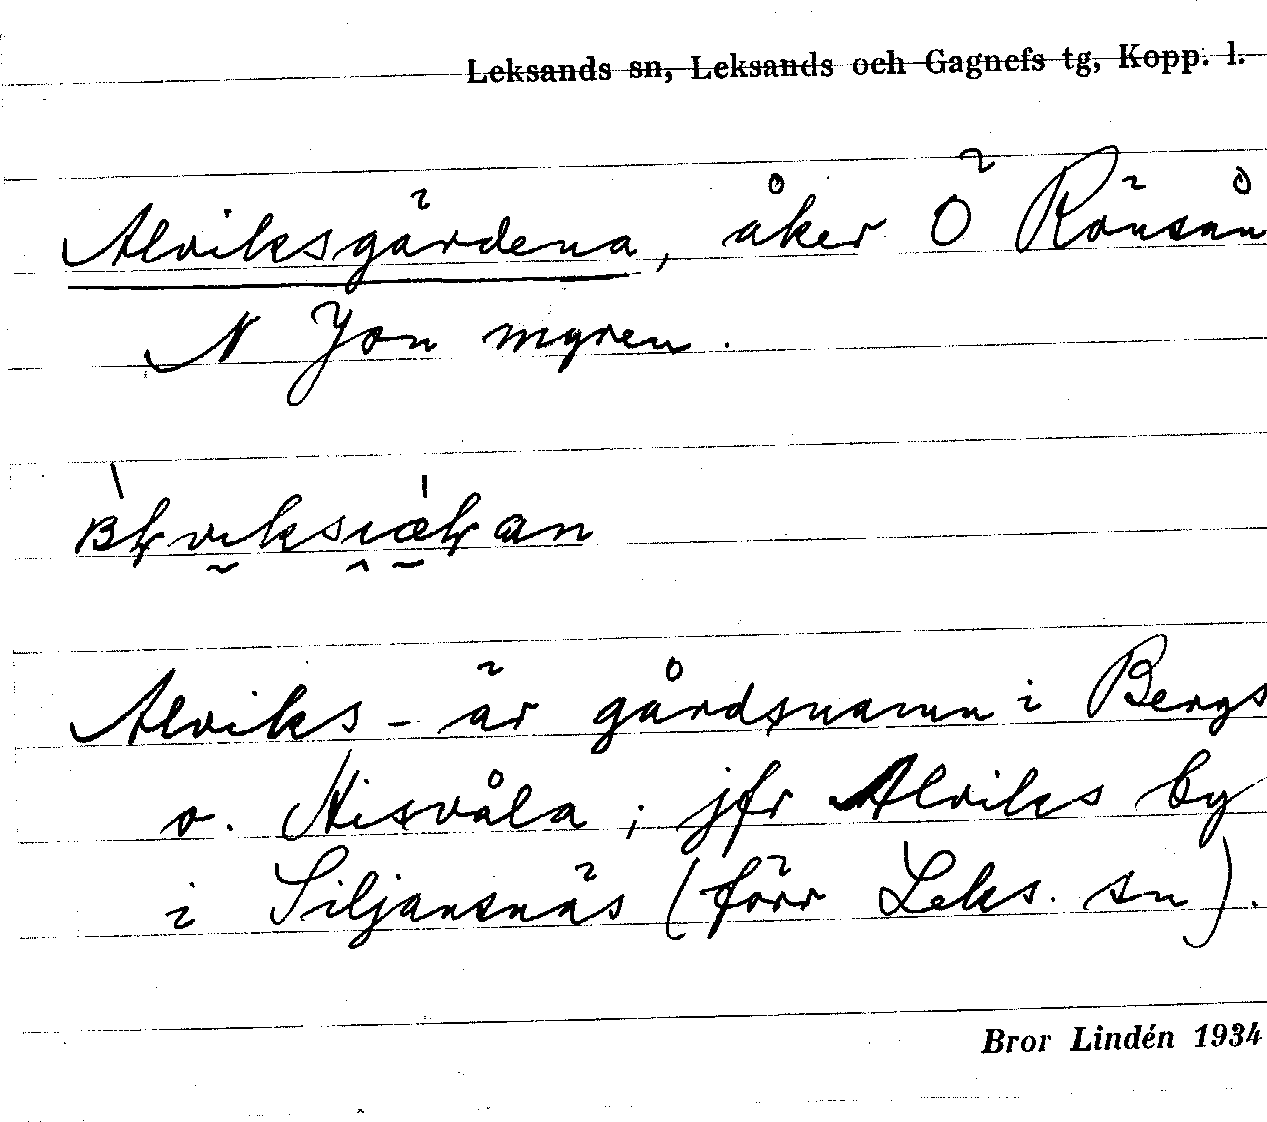 Leksands sn, Leksands och Gagnefs tg, Kopp. l.
Alviksgärdena, åker Ö Rönsån
N Jon myren.
Alviks- är gårdsnamn i Bergs
o. Hisvåla; jfr Alviks by
i Siljansnäs (förr Leks. sn).
Bror Lindén 1934